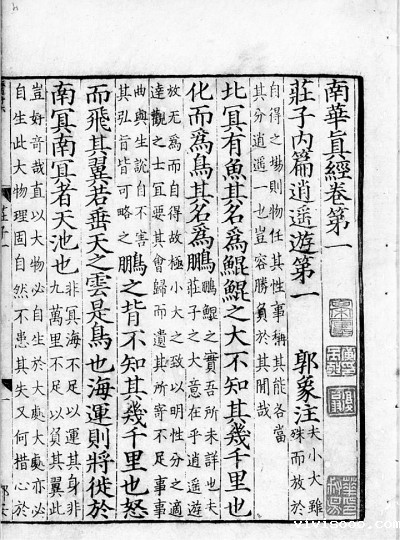 南華眞經卷第一
莊子內篇逍遥遊第一 郭象注 夫小大雖
殊而放於
自得之場則物任其性事稱其能各當
其分逍遥一也豈容勝負於其閒哉
北冥有魚其名爲鯤鯤之大不知其幾千里也
化而爲鳥其名爲鵬 鵬鯤之實吾所未詳也夫
莊子之大意在乎逍遥遊
放無爲而自得故極小大之致以明性分之適
達觀之士宜要其會歸而遺其所寄不足事事
曲與生說自不害
其弘旨皆可略之 鵬之背不知其幾千里也怒
而飛其翼若垂天之雲是鳥也海運則將徙於
南冥南冥者天池也 非冥海不足以運其身非
九萬里不足以負其翼此
豈好奇哉直以大物必自生於大處大處亦必
自生此大物理固自然不患其失又何措心於